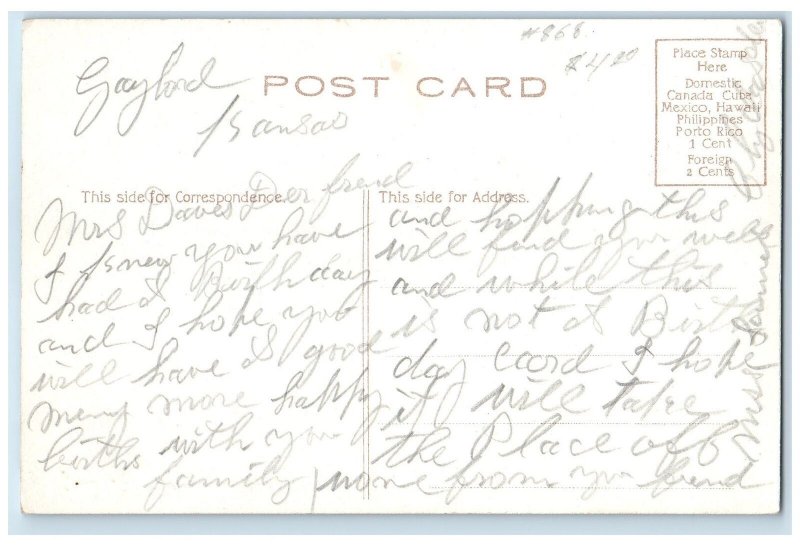 #868
$4.00
Gaylord
Kansas
POST CARD
Place Stamp
Here
Domestic
Canada Cuba
Mexico, Hawaii
Philippines
Porto Rico
1 Cent
Foreign
2 Cents
This side for Correspondence.
This side for Address.
Mrs Daves Der frend
I Know you have
had A Birthday
and I hope you
will have A good
meny more happy
births with you
family
and hopping this
will find you well
and while this
is not A Birth
day card I hope
it will take
the Place of
one from you frend
Mrs